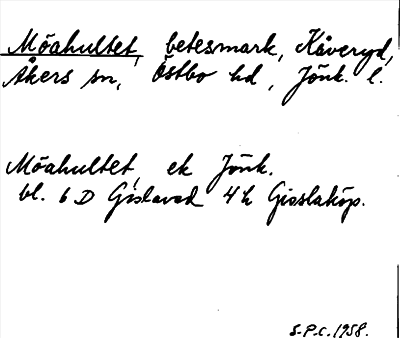 Möahultet, betesmark, Kåveryd,
Åkers sn, Östbo hd, Jönk. l.
Möahultet, ek Jönk.
bl. 6 D Gislaved 4 h Gisslaköp.
S.P.C. 1958.